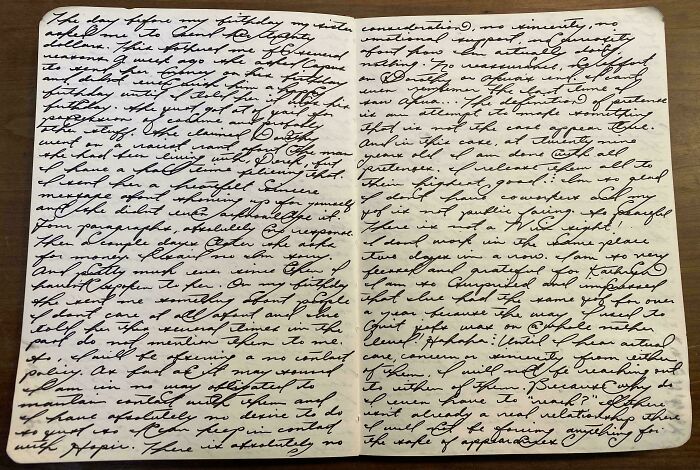 The day before my birthday my sister
asked me to lend her twenty
dollars. This bothered me for several
reasons. A week ago she asked
to some her money on his birthday
and didnt even wish him a happy
birthday until I told her it was his
birthday. She just got
She claimed Dorothy
went on a racist rant about the man
she had been living with, Derek, but
I have a hard time believing that.
I sent her a heartfelt sincere
message about showing up for yourself
and she didnt even acknowledge it.
Four paragraphs, absolutely no response.
Then a couple days later she asks
for money. No im sorry.
And pretty much ever since then I
havent spoken to her. On my birthday
she sent me something about people
I dont care at all about and ive
told her this several times in the
past do not mention them to me.
So, I will be offering a no contact
policy. As bad as it may sound
I am in no way obligated to
maintain contact with them and
I have absolutely no desire to do
so just so I can keep in contact
with There is absolutely no
consideration, no sincerity, no
emotional support, no curiosity
about how im actually doing,
nothing. No reassurance. No effort
on Dorothy or end. I cant
even remember the last time I
saw The definition of pretense
is an attempt to make something
that is not the case appear true.
And in this case, at twenty nine
years old I am done with all
pretenses. I release them all to
their highest good. Im so glad
I dont have coworkers and my
job is not public facing. So peaceful
There is not a right!
I dont work in the same place
two days in a row. I am so very
blessed and grateful for
I am so surprised and impressed
that ive had the same job for over
a year because the way I used to
quit jobs was on a whole nother
level. Hahaha! Until I hear actual
care, concern or sincerity from either
of them, I will not be reaching out
to either of them. Because why do
I even have to "reach?" If there
isnt already a real relationship there
I will not be forcing anything for
the sake of appearances